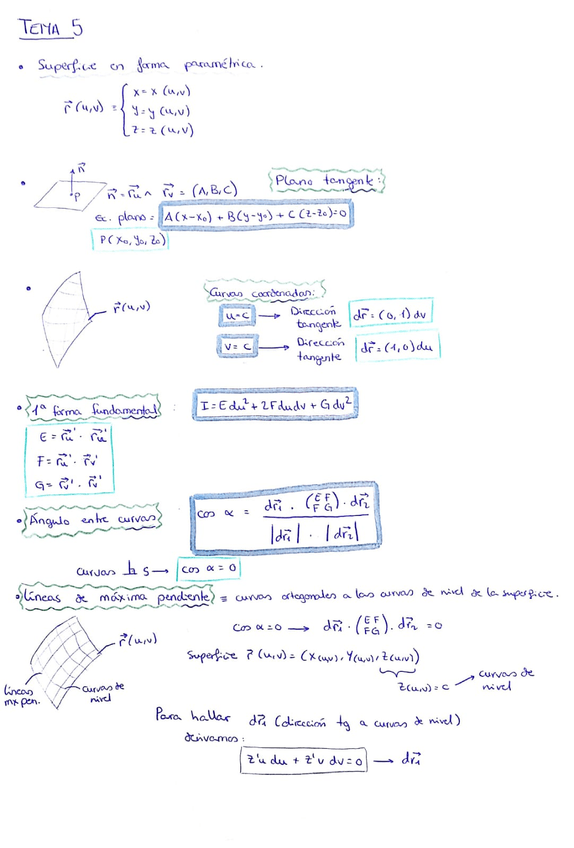 TEMA 5
• Superficie en forma paramétrica.
r⃗(u,v) = { x = x (u,v)
y = y (u,v)
z = z (u,v)
• n⃗
P
n⃗ = r⃗u ∧ r⃗v = (A,B,C)
Plano tangente:
Ec. plano = A(x-x₀) + B(y-y₀) + C(z-z₀)=0
P(x₀, y₀, z₀)
• r⃗(u,v)
Curvas coordenadas:
u=c → Dirección tangente dr⃗ = (0,1) dv
v=c → Dirección tangente dr⃗ = (1,0) du
• 1ª forma fundamental : I = E du² + 2F du dv + G dv²
E = r⃗u' · r⃗u'
F = r⃗u' · r⃗v'
G = r⃗v' · r⃗v'
• Ángulo entre curvas
cos α = dr⃗₁ · (E F
F G) · dr⃗₂
|dr⃗₁| · |dr⃗₂|
curvas ⊥ s → cos α = 0
• Líneas de máxima pendiente ≡ curvas ortogonales a las curvas de nivel de la superficie.
cos α=0 → dr⃗₁ · (E F
F G) · dr⃗₂ = 0
r⃗(u,v)
Superficie r⃗(u,v) = (x(u,v), y(u,v), z(u,v))
z(u,v) = c → curvas de nivel
líneas mx pen.
curvas de nivel
Para hallar dr⃗₁ (dirección tg a curvas de nivel)
derivamos:
z'u du + z'v dv = 0 → dr⃗₁